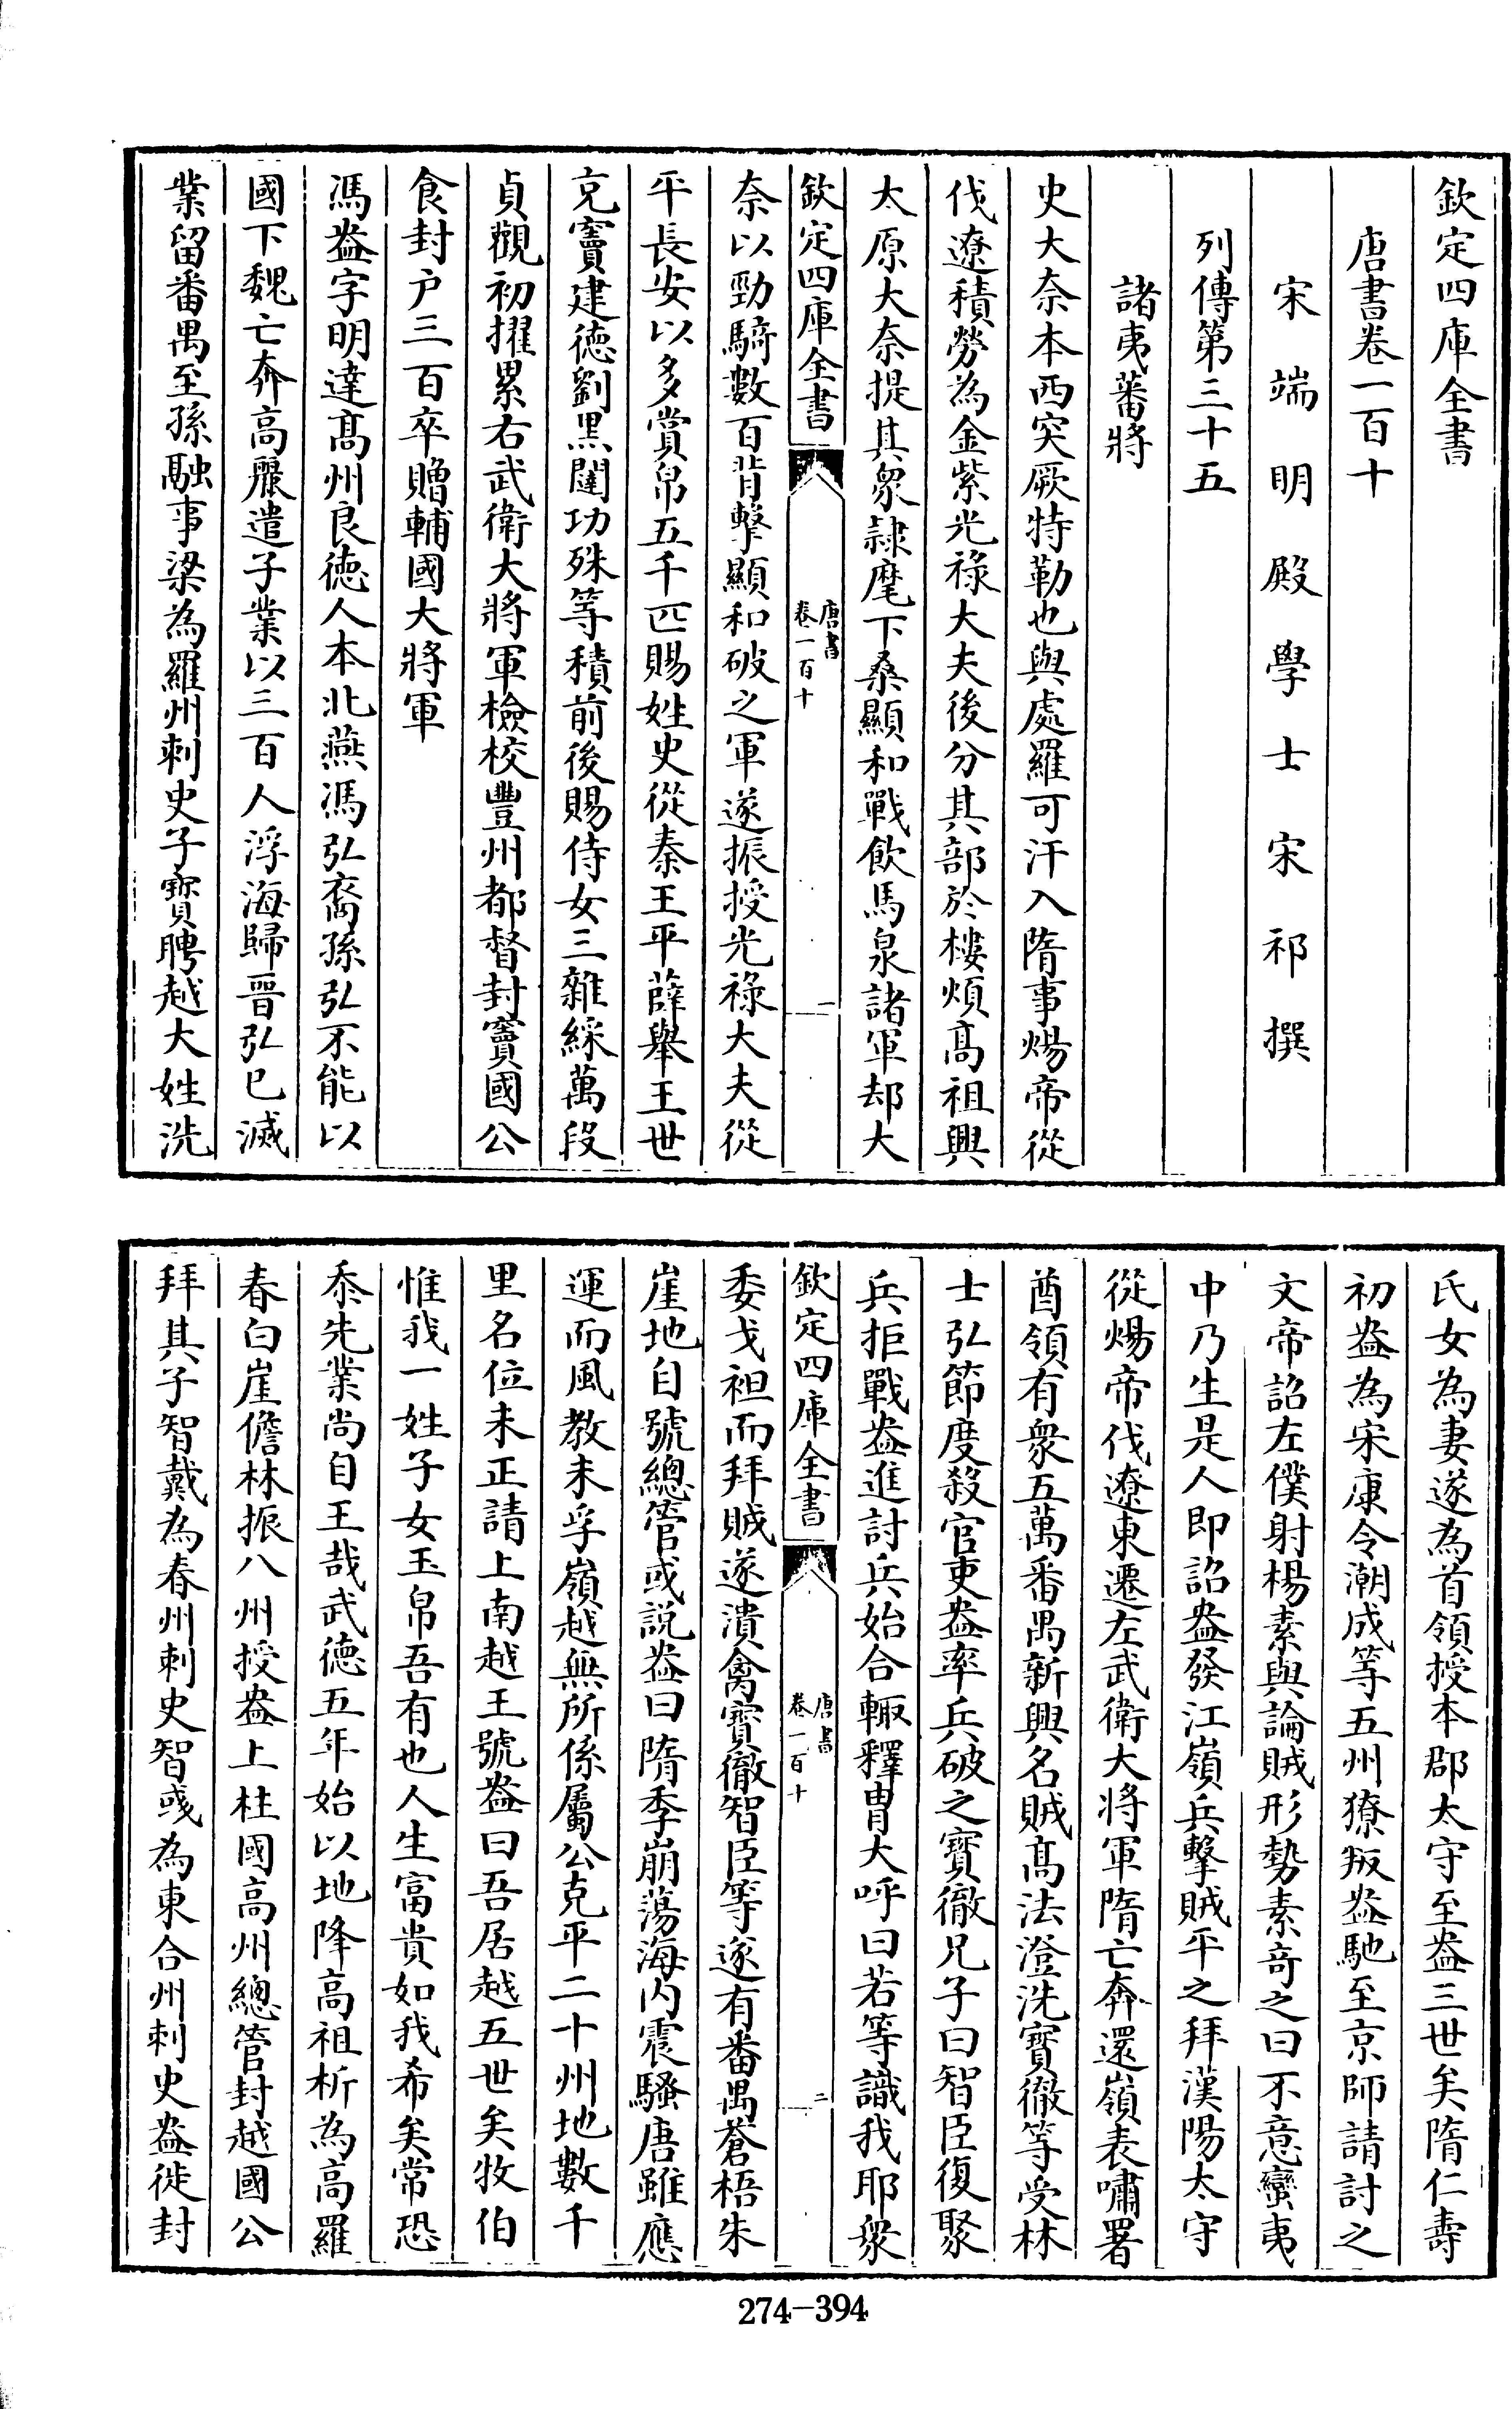 欽定四庫全書
唐書卷一百十
宋端明殿學士宋祁撰
列傳第三十五
諸夷蕃將
史大奈本西突厥特勒也與處羅可汗入隋事煬帝從
伐遼積勞為金紫光祿大夫後分其部於樓煩高祖興
太原大奈提其衆隷麾下桑顯和戰飲馬泉諸軍却大
欽定四庫全書
唐書
卷一百十
一
奈以勁騎數百背擊顯和破之軍遂振授光祿大夫從
平長安以多賞帛五千匹賜姓史從秦王平薛舉王世
充竇建德劉黑闥功殊等積前後賜侍女三雜綵萬段
貞觀初擢累右武衛大將軍檢校豐州都督封竇國公
食封戶三百卒贈輔國大將軍
馮盎字明達髙州良徳人本北燕馮弘裔孫弘不能以
國下魏亡奔高麗遣子業以三百人浮海歸晉弘已滅
業留番禺至孫融事梁為羅州刺史子寶聘越大姓洗
氏女為妻遂為首領授本郡太守至盎三世矣隋仁壽
初盎為宋康令潮成等五州獠叛盎馳至京師請討之
文帝詔左僕射楊素與論賊形勢素竒之曰不意蠻夷
中乃生是人即詔盎發江嶺兵擊賊平之拜漢陽太守
從煬帝伐遼東遷左武衛大將軍隋亡奔還嶺表嘯署
酋領有衆五萬番禺新興名賊髙法澄洗寶徹等受林
士弘節度殺官吏盎率兵破之寳徹兄子曰智臣復聚
兵拒戰盎進討兵始合輙釋胄大呼曰若等識我耶衆
欽定四庫全書
唐書
卷一百十
二
委戈袒而拜賊遂潰禽寳徹智臣等遂有番禺蒼梧朱
崖地自號總管或說盎曰隋季崩蕩海内震騷唐雖應
運而風教未孚嶺越無所係屬公克平二十州地數千
里名位未正請上南越王號盎曰吾居越五世矣牧伯
惟我一姓子女玉帛吾有也人生富貴如我希矣常恐
忝先業尚自王哉武德五年始以地降高祖析為高羅
春白崖儋林振八州授盎上柱國高州總管封越國公
拜其子智戴為春州刺史智彧為東合州刺史盎徙封
274-394